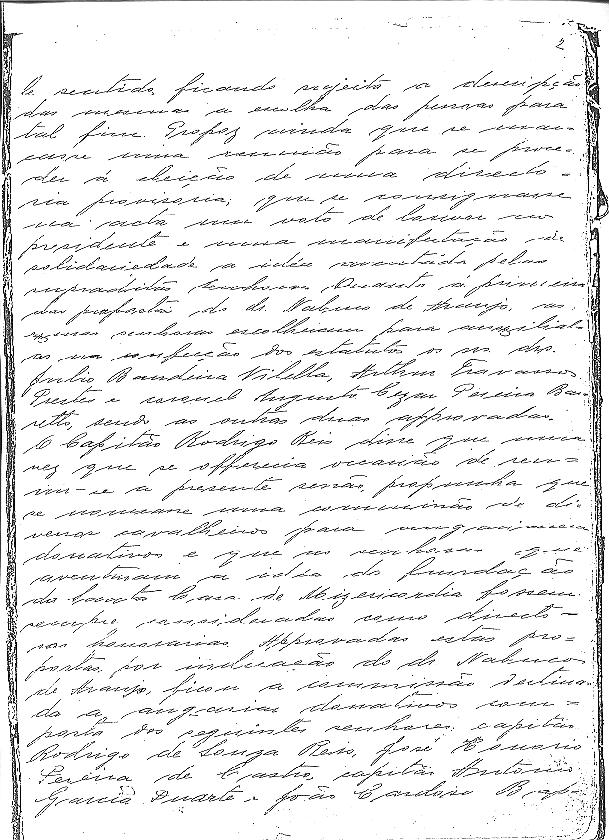 2
le sentido, ficando sujeito a descripção
das mesmas a escolha das pessoas para
tal fim. Propoz ainda que se mar-
casse uma reunião para se proce-
der á eleição de uma directo-
ria provisoria; que se consignasse
na acta um voto de louvor ao
presidente e uma manifestação de
solidariedade a idéa aventada pelas
senhoras. Quanto á primeira
das proposta do dr. Nabuco de Araujo, as
senhoras escolheram para auxilial-
as na confecção dos estatutos os srs. drs.
Julio Bandeira Vilella, Arthur Travassos
Prestes e coronel Augusto Cezar Pereira Bar
retto, sendo as outras duas approvadas.
O Capitão Rodrigo Reis disse que uma
vez que se offerecia occasião de reu-
nir-se a presente sessão, propunha que
se nomeasse uma commissão de di
versos cavalheiros para angariarem
donativos e que as senhoras que
aventaram a idéa da fundação
da Santa Casa de Mizericordia fossem
sempre consideradas como directo-
ras honorarias. Approvadas estas pro-
postas, por indicação do dr. Nabuco
de Araujo, ficou a commissão destina
da a angariar donativos com-
posta dos seguintes senhores: capitão
Rodrigo de Souza Reis, José Honorio
Pereira de Castro, capitão Antonio
Garcia Duarte e João Cardoso